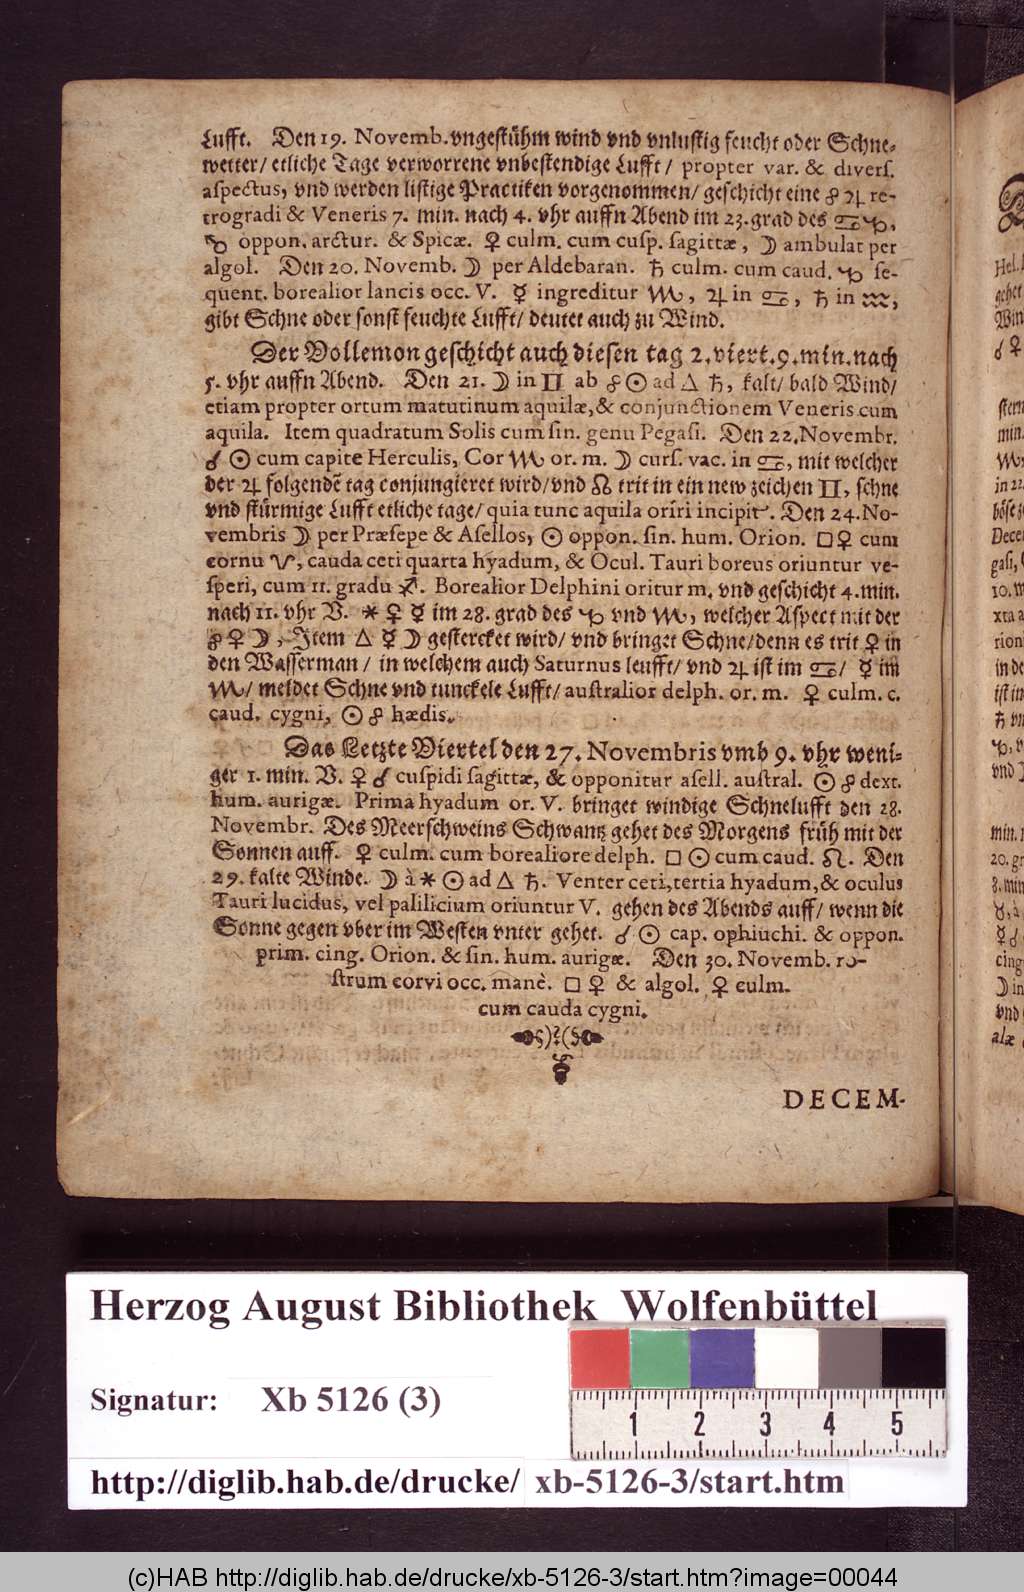 Lufft. Den 19. Novemb. vngestühm wind vnd vnlustig feucht oder Schne-
wetter/ etliche Tage verworrene vnbestendige Lufft/ propter var. & divers.
aspectus, vnd werden listige Practiken vorgenommen/ geschicht eine ☍ ♃ re-
trogradi & Veneris 7. min. nach 4. vhr auffn Abend im 23. grad des ♋ ♑,
♑ oppon. arctur. & Spicæ. ♀ culm. cum cusp. sagittæ, ☽ ambulat per
algol. Den 20. Novemb. ☽ per Aldebaran. ♄ culm. cum caud. ♑ se-
quent. borealior lancis occ. V. ☿ ingreditur ♏, ♃ in ♋, ♄ in ♒,
gibt Schne oder sonst feuchte Lufft/ deutet auch zu Wind.
Der Vollemon geschicht auch diesen tag 2. viert. 9. min. nach
5. vhr auffn Abend. Den 21. ☽ in ♊ ab ☍ ☉ ad △ ♄, kalt/ bald Wind/
etiam propter ortum matutinum aquilæ, & conjunctionem Veneris cum
aquila. Item quadratum Solis cum sin. genu Pegasi. Den 22. Novembr.
☌ ☉ cum capite Herculis, Cor ♏ or. m. ☽ curs. vac. in ♋, mit welcher
der ♃ folgendẽ tag conjungieret wird/ vnd ☊ trit in ein new zeichen ♊, schne
vnd stürmige Lufft etliche tage/ quia tunc aquila oriri incipit. Den 24. No-
vembris ☽ per Præsepe & Asellos, ☉ oppon. sin. hum. Orion. □ ♀ cum
cornu ♈, cauda ceti quarta hyadum, & Ocul. Tauri boreus oriuntur ve-
speri, cum 11. gradu ♐. Borealior Delphini oritur m. vnd geschicht 4. min.
nach 11. vhr V. ⚹ ♀ ☿ im 28. grad des ♑ vnd ♏, welcher Aspect mit der
☍ ♀ ☽, Item △ ☿ ☽ gestercket wird/ vnd bringet Schne/ denn es trit ♀ in
den Wasserman/ in welchem auch Saturnus leufft/ vnd ♃ ist im ♋/ ☿ im
♏/ meldet Schne vnd tunckele Lufft/ australior delph. or. m. ♀ culm. c.
caud. cygni, ☉ ☍ hædis.
Das Letzte Viertel den 27. Novembris vmb 9. vhr weni-
ger 1. min. V. ♀ ☌ cuspidi sagittæ, & opponitur asell. austral. ☉ ☍ dext.
hum. aurigæ. Prima hyadum or. V. bringet windige Schnelufft den 28.
Novembr. Des Meerschweins Schwantz gehet des Morgens früh mit der
Sonnen auff. ♀ culm. cum borealiore delph. □ ☉ cum caud. ♌. Den
29. kalte Winde. ☽ à ⚹ ☉ ad △ ♄. Venter ceti, tertia hyadum, & oculus
Tauri lucidus, vel palilicium oriuntur V. gehen des Abends auff/ wenn die
Sonne gegen vber im Westen vnter gehet. ☌ ☉ cap. ophiuchi. & oppon.
prim. cing. Orion. & sin. hum. aurigæ. Den 30. Novemb. ro-
strum corvi occ. manè. □ ♀ & algol. ♀ culm.
cum cauda cygni.
DECEM-
Herzog August Bibliothek Wolfenbüttel
Signatur: Xb 5126 (3)
1 2 3 4 5
http://diglib.hab.de/drucke/ xb-5126-3/start.htm
(c)HAB http://diglib.hab.de/drucke/xb-5126-3/start.htm?image=00044